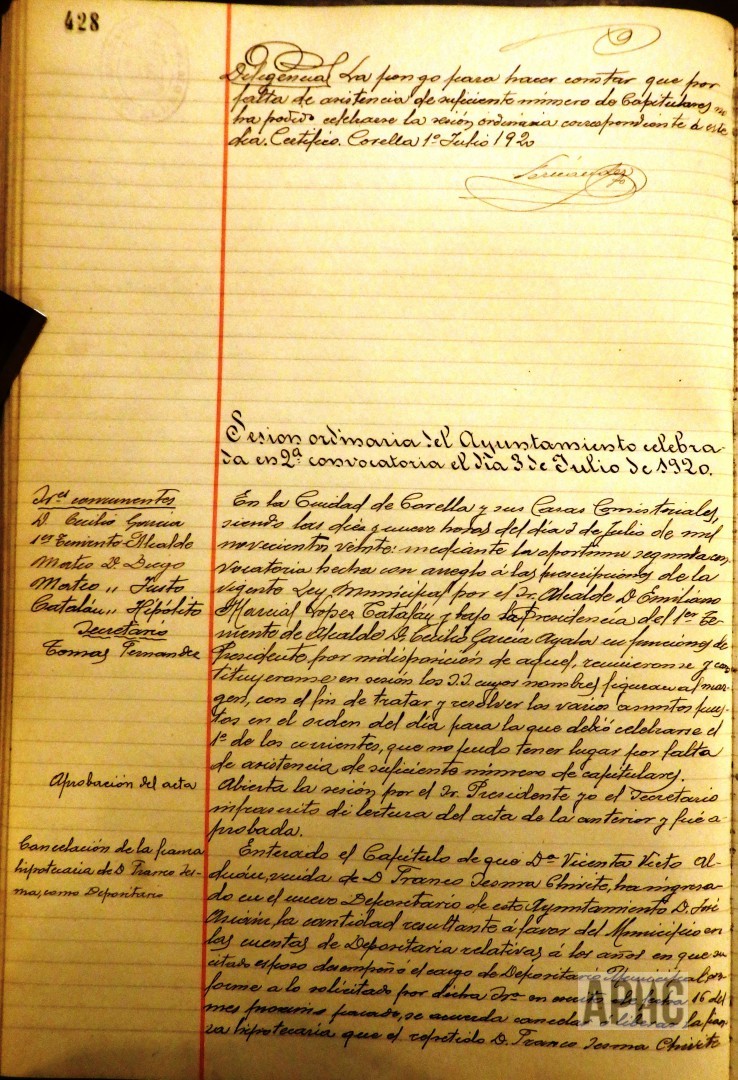 428
Diligencia) La pongo para hacer constar que por
falta de asistencia de suficiente número de Capitulares no
ha podido celebrarse la sesión ordinaria correspondiente á este
dia. Certifico. Corella 1º Julio 1920
Fernández
Sesion ordinaria del Ayuntamiento celebra-
da en 2ª convocatoria el día 3 de Julio de 1920.
Sres concurrentes
D. Cecilio García
1er Teniente Alcalde
Mateo D. Diego
Mateo " Justo
Catalán " Hipólito
Secretario
Tomas Fernandez
En la Ciudad de Corella y sus Casas Consistoriales,
siendo las diez y nueve horas del día 3 de Julio de mil
novecientos veinte: mediante la oportuna segunda con-
vocatoria hecha con arreglo á las prescripciones de la
vigente Ley Municipal por el Sr. Alcalde D. Emiliano
Marcial Lopez Catalán y bajo la Presidencia del 1er Te-
niente de Alcalde D. Cecilio García Ayala en funciones de
Presidente por indisposición de aquel, reunieronse y cons
tituyeronse en sesión los S.S. cuyos nombres figuran al mar-
gen, con el fin de tratar y resolver los varios asuntos pues-
tos en el orden del día para la que debió celebrarse el
1º de los corrientes, que no pudo tener lugar por falta
de asistencia de suficiente número de capitulares.
Aprobación del acta
Abierta la sesión por el Sr. Presidente yo el Secretario
infrascrito di lectura del acta de la anterior y fué a-
probada.
Cancelación de la fianza
hipotecaria de D. Franco Ses-
ma, como Depositario
Enterado el Capítulo de que Dª Vicenta Virto Al-
duán, viuda de D. Franco Sesma Chivite, ha ingresa-
do en el nuevo Depositario de este Ayuntamiento D. José
la cantidad resultante á favor del Municipio en
las cuentas de Depositaria relativas á los años en que su
citado esposo desempeñó el cargo de Depositario Municipal con-
forme a lo solicitado por dicha Sra en escrito de fecha 16 del
mes proximo pasado, se acuerda cancelar ó liberar la fian-
za hipotecaria que el repetido D. Franco Sesma Chivite
APHC